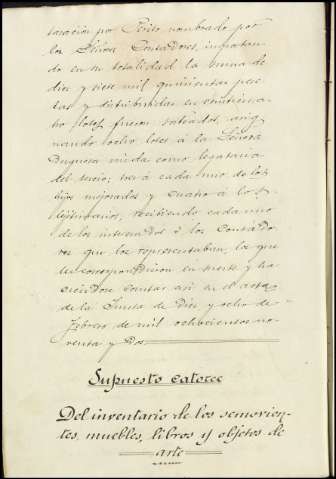 tasación por Perito nombrado por
los Señores Contadores, importan-
do en su totalidad la suma de
diez y siete mil quinientas pese-
tas y distribuidas en
lotes, fueron sorteados, asig-
nando ocho lotes á la Señora
Duquesa viuda como legataria
del tercio; tres á cada uno de los
hijos mejorados y cuatro á los
legitimarios, recibiendo cada uno
de los interesados ó los Contado-
res que los representaban, los que
les correspondieron en suerte y ha-
ciéndose constar así en el acta
de la Junta de Diez y ocho de
Febrero de mil ochocientos no-
venta y dos
Supuesto catorce
Del inventario de los semovien-
tes, muebles, libros y objetos de
arte